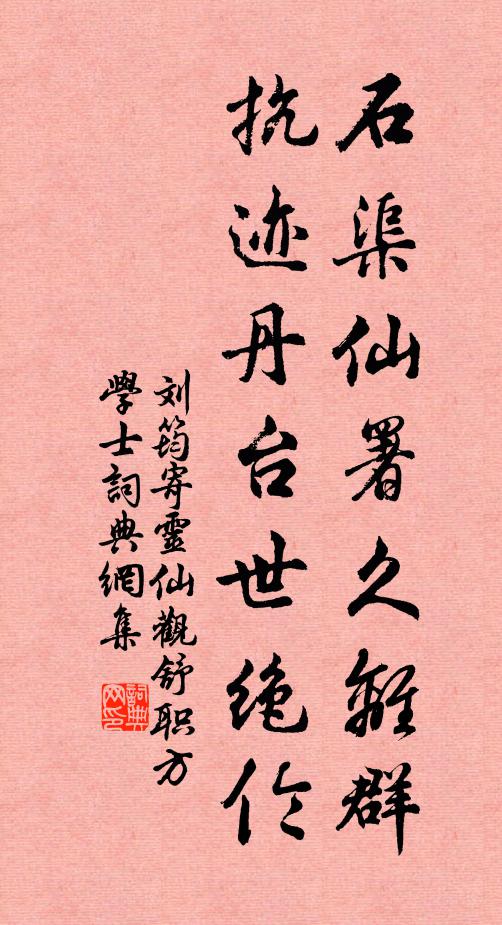 石渠仙署久離群
抗迹丹台世绝伦
刘筠寄靈仙觀舒职方
學士詞典網集
詞典网印